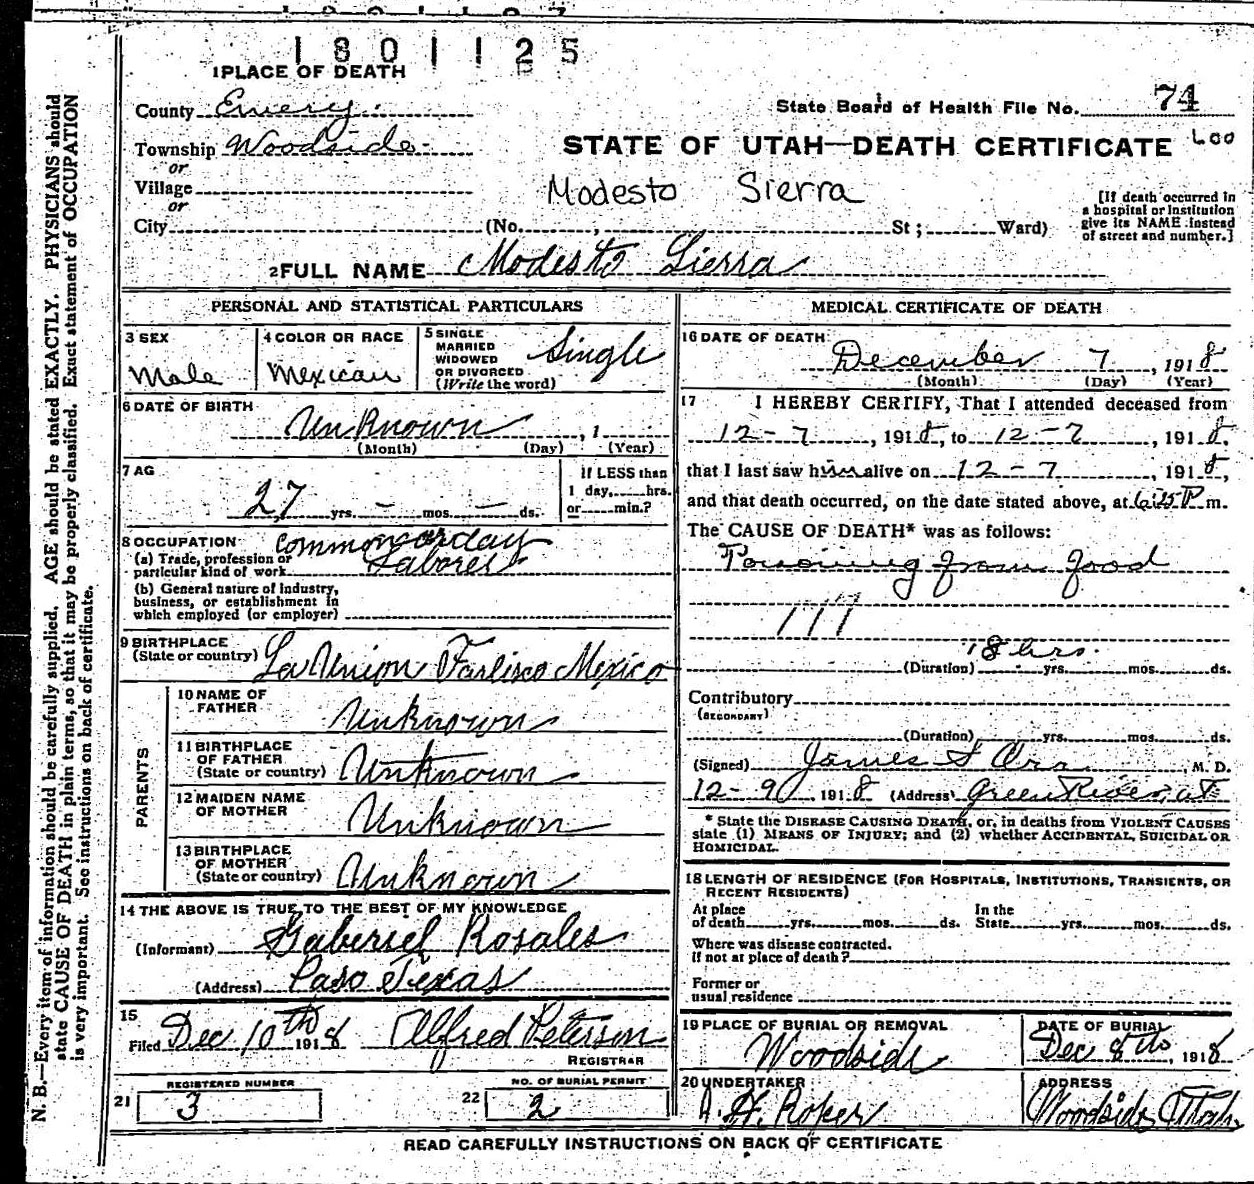 1801125
1 PLACE OF DEATH
County Emery.
State Board of Health File No. 74
Township Woodside
STATE OF UTAH—DEATH CERTIFICATE 600
or
Village
Modesto Sierra
or
City (No. , St ; Ward)
[If death occurred in
a hospital or institution
give its NAME instead
of street and number.]
2 FULL NAME Modesto Sierra
PERSONAL AND STATISTICAL PARTICULARS
3 SEX
Male
4 COLOR OR RACE
Mexican
5 SINGLE
MARRIED
WIDOWED
OR DIVORCED
(Write the word)
Single
6 DATE OF BIRTH
Unknown , 1
(Month) (Day) (Year)
7 AG
27 yrs. - mos. - ds.
If LESS than
1 day, hrs.
or min.?
8 OCCUPATION
(a) Trade, profession or
particular kind of work
common or day
Laborer
(b) General nature of industry,
business, or establishment in
which employed (or employer)
9 BIRTHPLACE
(State or country) La Union Farlisco Mexico
PARENTS
10 NAME OF
FATHER Unknown
11 BIRTHPLACE
OF FATHER
(State or country) Unknown
12 MAIDEN NAME
OF MOTHER Unknown
13 BIRTHPLACE
OF MOTHER
(State or country) Unknown
14 THE ABOVE IS TRUE TO THE BEST OF MY KNOWLEDGE
(Informant) Gabersel Rosales
(Address) Paso Texas
15
Filed Dec 10th 1918 Alfred Peterson
REGISTRAR
REGISTERED NUMBER
21 3
NO. OF BURIAL PERMIT
22 2
MEDICAL CERTIFICATE OF DEATH
16 DATE OF DEATH
December 7, 1918
(Month) (Day) (Year)
17 I HEREBY CERTIFY, That I attended deceased from
12-7, 1918, to 12-7, 1918,
that I last saw him alive on 12-7, 1918,
and that death occurred, on the date stated above, at 6:25 P m.
The CAUSE OF DEATH* was as follows:
Poisoning from food
117
18 hrs.
(Duration) yrs. mos. ds.
Contributory
(SECONDARY)
(Duration) yrs. mos. ds.
(Signed) James S Orr, M. D.
12-9, 1918 (Address) Green River, Ut
* State the DISEASE CAUSING DEATH, or, in deaths from VIOLENT CAUSES
state (1) MEANS OF INJURY; and (2) whether ACCIDENTAL, SUICIDAL OR
HOMICIDAL.
18 LENGTH OF RESIDENCE (FOR HOSPITALS, INSTITUTIONS, TRANSIENTS, OR
RECENT RESIDENTS)
At place In the
of death yrs. mos. ds. State yrs. mos. ds.
Where was disease contracted.
if not at place of death?
Former or
usual residence
19 PLACE OF BURIAL OR REMOVAL
Woodside
DATE OF BURIAL
Dec 8th, 1918
20 UNDERTAKER
A. H. Roper
ADDRESS
Woodside Utah.
READ CAREFULLY INSTRUCTIONS ON BACK OF CERTIFICATE
N. B.—Every item of information should be carefully supplied. AGE should be stated EXACTLY. PHYSICIANS should
state CAUSE OF DEATH in plain terms, so that it may be properly classified. Exact statement of OCCUPATION
is very important. See instructions on back of certificate.